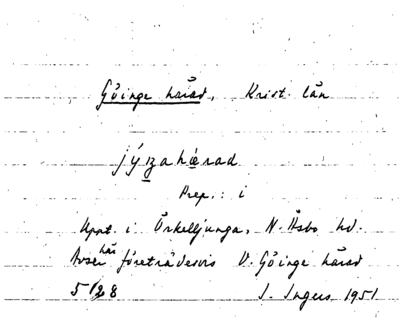 Göinge härad, Krist. län
jýŋahærad
Prep.: i
Uppt. i Örkelljunga, N. Åsbo hd.
Avser här företrädesvis V. Göinge härad
5/2 8 I. Ingers 1951